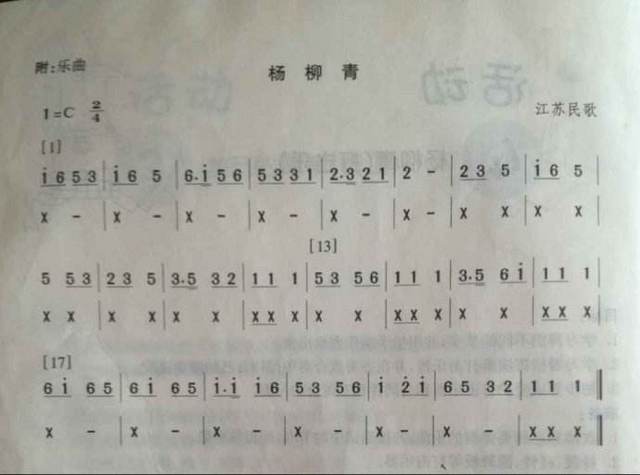 附:乐曲
杨柳青
1=C 2/4
江苏民歌
[1]
i 6 5 3 | i 6 5 | 6. i 5 6 | 5 3 3 1 | 2. 3 2 1 | 2 - | 2 3 5 | i 6 5 |
X - | X - | X - | X - | X - | X - | X X | X X |
[13]
5 5 3 | 2 3 5 | 3. 5 3 2 | 1 1 1 | 5 3 5 6 | 1 1 1 | 3. 5 6 i | 1 1 1
X X | X X | X X | X X X | X X | X X X | X X | X X X
[17]
6 i 6 5 | 6 i 6 5 | i. i i 6 | 5 3 5 6 | i 2 i | 6 5 3 2 | 1 1 1 ‖
X - | X - | X - | X - | X - | X - | X X X ‖